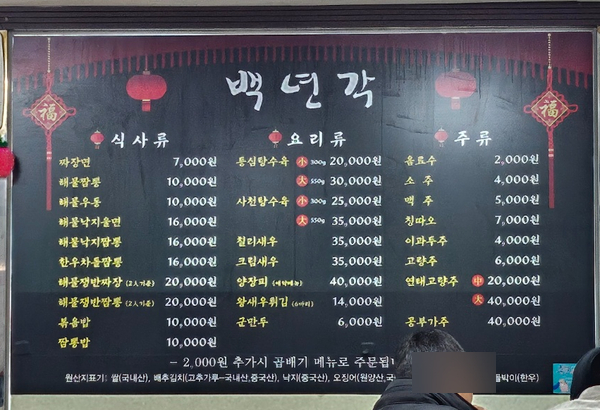 福
福
백년각
식사류
짜장면 7,000원
해물짬뽕 10,000원
해물우동 10,000원
해물낙지울면 16,000원
해물낙지짬뽕 16,000원
한우차돌짬뽕 16,000원
해물쟁반짜장 (2人기준) 20,000원
해물쟁반짬뽕 (2人기준) 20,000원
볶음밥 10,000원
짬뽕밥 10,000원
요리류
등심탕수육 小 300g 20,000원
大 550g 30,000원
사천탕수육 小 300g 25,000원
大 550g 35,000원
칠리새우 35,000원
크림새우 35,000원
양장피 40,000원
왕새우튀김 (6마리) 14,000원
군만두 6,000원
주류
음료수 2,000원
소주 4,000원
맥주 5,000원
칭따오 7,000원
이과두주 4,000원
고량주 6,000원
연태고량주 中 20,000원
大 40,000원
공부가주 40,000원
- 2,000원 추가시 곱배기 메뉴로 주문됩
원산지표기: 쌀(국내산), 배추김치(고추가루-국내산,중국산), 낙지(중국산), 오징어(원양산,국 돌박이(한우)